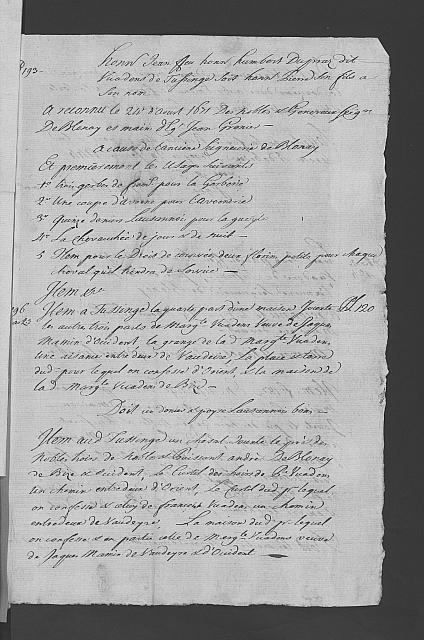 193
honn Jean feu honn humbert Dupraz dit
Vuadens de Tussinge soit honn Pierre son fils a
son nom
A reconnu le 24e d'aout 1671 Des nobles & Genereux Seigrs
De Blonay es mains d'Eg. Jean
a cause de l'ancienne Seigneurie de Blonay
Et premierement les Usages suivants
1o trois gerbes de pour la Gerberie
2o Une coupe d'avoine pour l'avoinerie
3o Quinze deniers Lausannois pour la
4o La Chevauchée de jour & de nuit
5 Item pour le Droit de deux florins petits pour chaque
cheval qu'il tiendra de
Item
Item a Tussinge la quarte part d'une maison Jouxte fol 120
les autres trois parts de Margte Vuadens veuve de Jaques
Mamin d'Occident, la grange de la d. Margte Vuadens
une aisance entredeux de Vaudaire, la place
dud. pour lequel on confesse d'Orient, & la maison de
la d. Margte Vuadens de Bize
Doit un denier & Lausannois bon
Item aud. Tussinge un chosal Jouxte le pré des
Nobles hoirs de Noble & Puissant André De Blonay
de Bize & Occident, le Curtil des hoirs de Vuadens
un chemin entredeux d'Orient, Le Curtil dud. pr lequel
on confesse & celuy de francois Vuadens un chemin
entredeux de Vaudeyre, La maison dud. pr lequel
on confesse & en partie celle de Margte Vuadens veuve
de Jaques Mamin de Vaudeyre & d'Occident